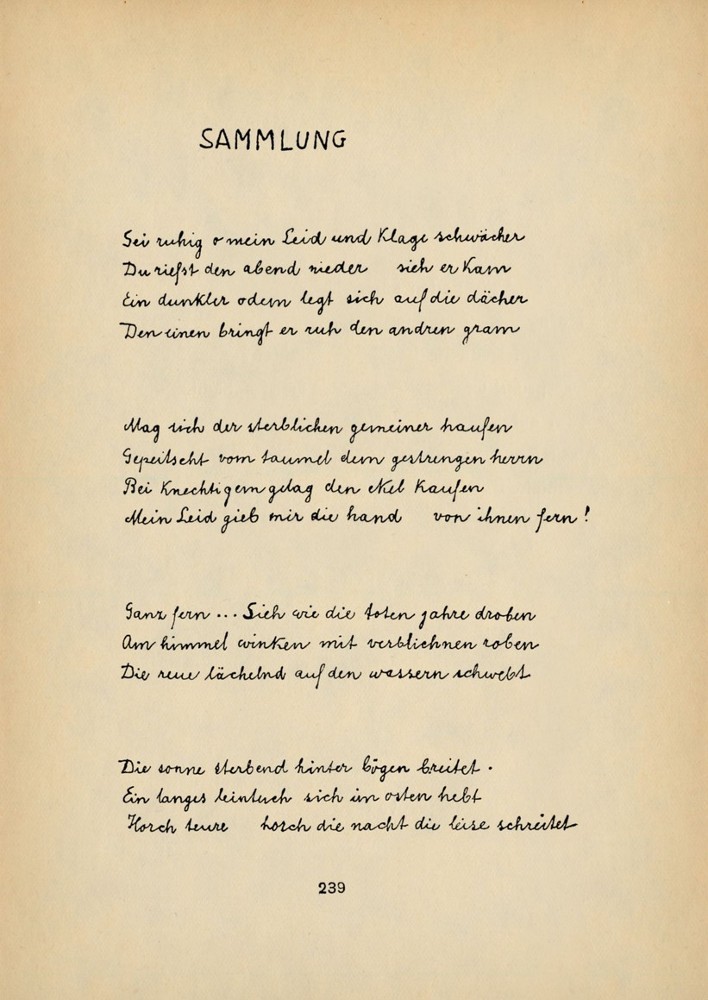 SAMMLUNG
Sei ruhig o mein Leid und Klage schwächer
Du riefst den abend nieder sieh er kam
Ein dunkler odem legt sich auf die dächer
Den einen bringt er ruh den andren gram
Mag sich der sterblichen gemeiner haufen
Gepeitscht vom taumel dem gestrengen herrn
Bei knechtigem gelag den ekel kaufen
Mein Leid gieb mir die hand von ihnen fern!
Ganz fern ... Sieh wie die toten jahre droben
Am himmel winken mit verblichnen roben
Die reue lächelnd auf den wassern schwebt
Die sonne sterbend hinter bögen breitet .
Ein langes leintuch sich im osten hebt
Horch teure horch die nacht die leise schreitet
239